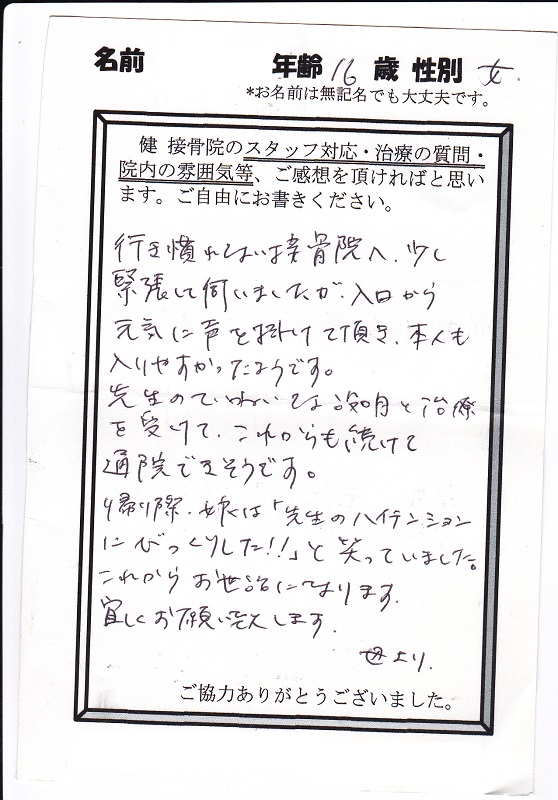 名前 年齢 16 歳 性別 女.
*お名前は無記名でも大丈夫です。
健 接骨院のスタッフ対応・治療の質問・
院内の雰囲気等、ご感想を頂ければと思い
ます。ご自由にお書きください。
行き慣れない接骨院へ、少し
緊張して伺いましたが、入口から
元気に声を掛けて頂き、本人も
入りやすかったようです。
先生のていねいな説明と治療
を受けて、これからも続けて
通院できそうです。
帰り際、娘は「先生のハイテンション
にびっくりした!!」と笑っていました。
これからお世話になります.
宜しくお願い致します.
母より.
ご協力ありがとうございました。